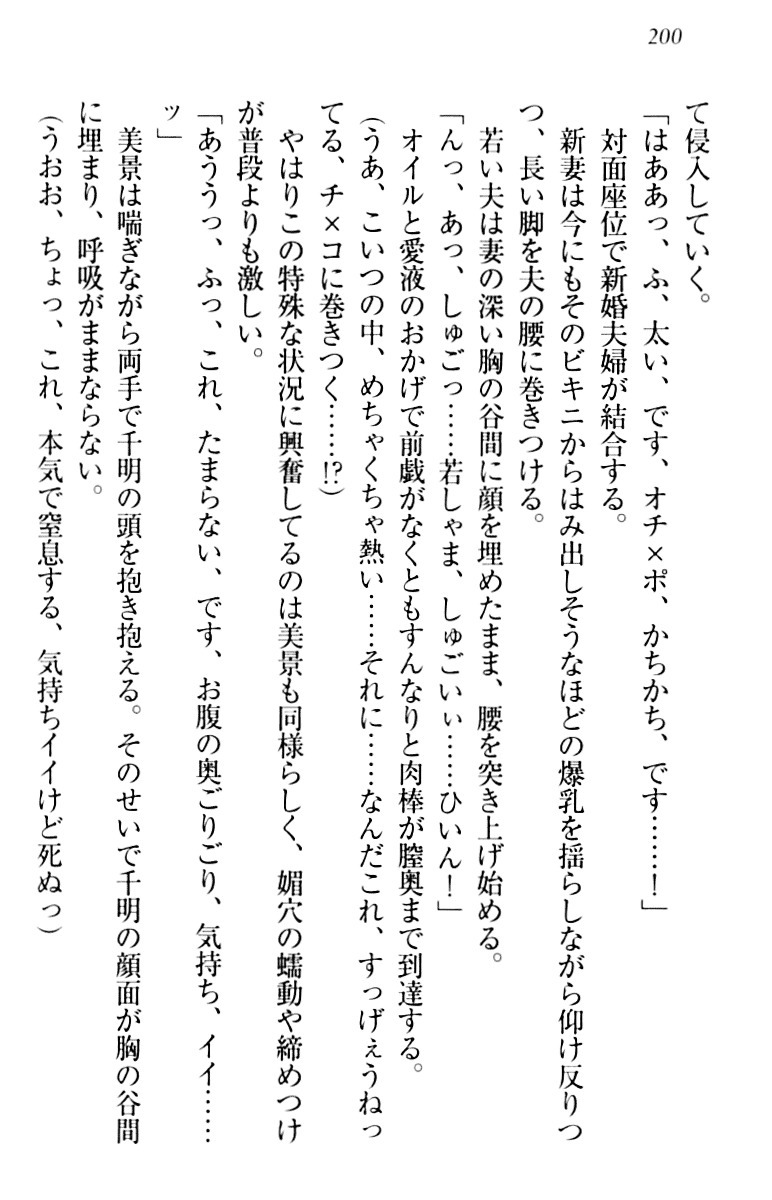 200
て侵入していく。
「はああっ、ふ、太い、です、オチ×ポ、かちかち、です……！」
対面座位で新婚夫婦が結合する。
新妻は今にもそのビキニからはみ出しそうなほどの爆乳を揺らしながら仰け反りつ
つ、長い脚を夫の腰に巻きつける。
若い夫は妻の深い胸の谷間に顔を埋めたまま、腰を突き上げ始める。
「んっ、あっ、しゅごっ……若しゃま、しゅごいぃ……ひいん！」
オイルと愛液のおかげで前戯がなくともすんなりと肉棒が膣奥まで到達する。
(うあ、こいつの中、めちゃくちゃ熱い……それに……なんだこれ、すっげぇうねっ
てる、チ×コに巻きつく……!?)
やはりこの特殊な状況に興奮してるのは美景も同様らしく、媚穴の蠕動や締めつけ
が普段よりも激しい。
「あううっ、ふっ、これ、たまらない、です、お腹の奥ごりごり、気持ち、イイ……
ッ」
美景は喘ぎながら両手で千明の頭を抱き抱える。そのせいで千明の顔面が胸の谷間
に埋まり、呼吸がままならない。
(うおお、ちょっ、これ、本気で窒息する、気持ちイイけど死ぬっ)